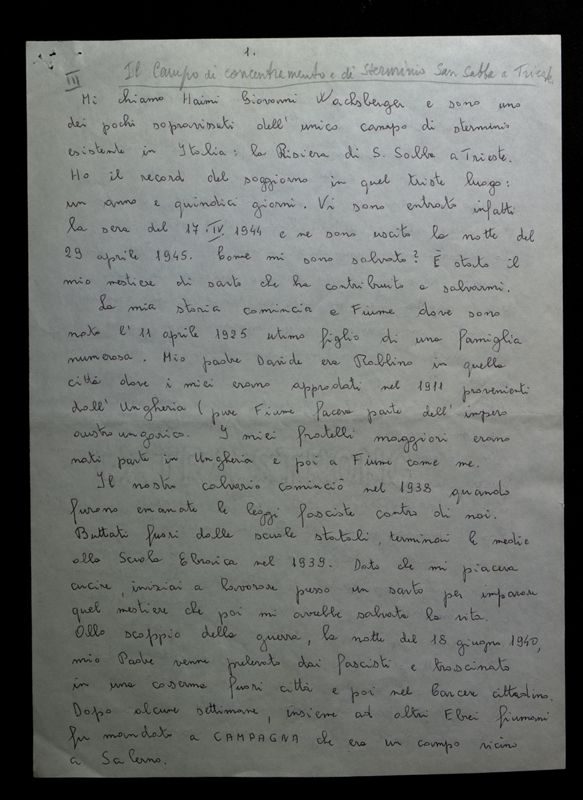 1.
III Il Campo di concentramento e di sterminio San Sabba a Trieste.
Mi chiamo Haimi Giovanni Wachsberger e sono uno
dei pochi sopravissuti dell' unico campo di sterminio
esistente in Italia: la Risiera di S. Sabba a Trieste.
Ho il record del soggiorno in quel triste luogo:
un anno e quindici giorni. Vi sono entrato infatti
la sera del 17.IV.1944 e ne sono uscito la notte del
29 aprile 1945. Come mi sono salvato? È stato il
mio mestiere di sarto che ha contribuito a salvarmi.
La mia storia comincia a Fiume dove sono
nato l' 11 aprile 1925 utimo figlio di una famiglia
numerosa. Mio padre Davide era Rabbino in quella
città dove i miei erano approdati nel 1911 provenienti
dall' Ungheria (pure Fiume faceva parte dell' impero
austro ungarico. I miei fratelli maggiori erano
nati parte in Ungheria e poi a Fiume come me.
Il nostro calvario cominciò nel 1938 quando
furono emanate le leggi fasciste contro di noi.
Buttati fuori dalle scuole statali, terminai le medie
alla Scuola Ebraica nel 1939. Dato che mi piaceva
cucire, iniziai a lavorare presso un sarto per imparare
quel mestiere che poi mi avrebbe salvato la vita.
Allo scoppio della guerra, la notte del 18 giugno 1940,
mio Padre venne prelevato dai fascisti e trascinato
in una caserma fuori città e poi nel Carcere cittadino.
Dopo alcune settimane, insieme ad altri Ebrei fiumani
fu mandato a CAMPAGNA che era un campo vicino
a Salerno.